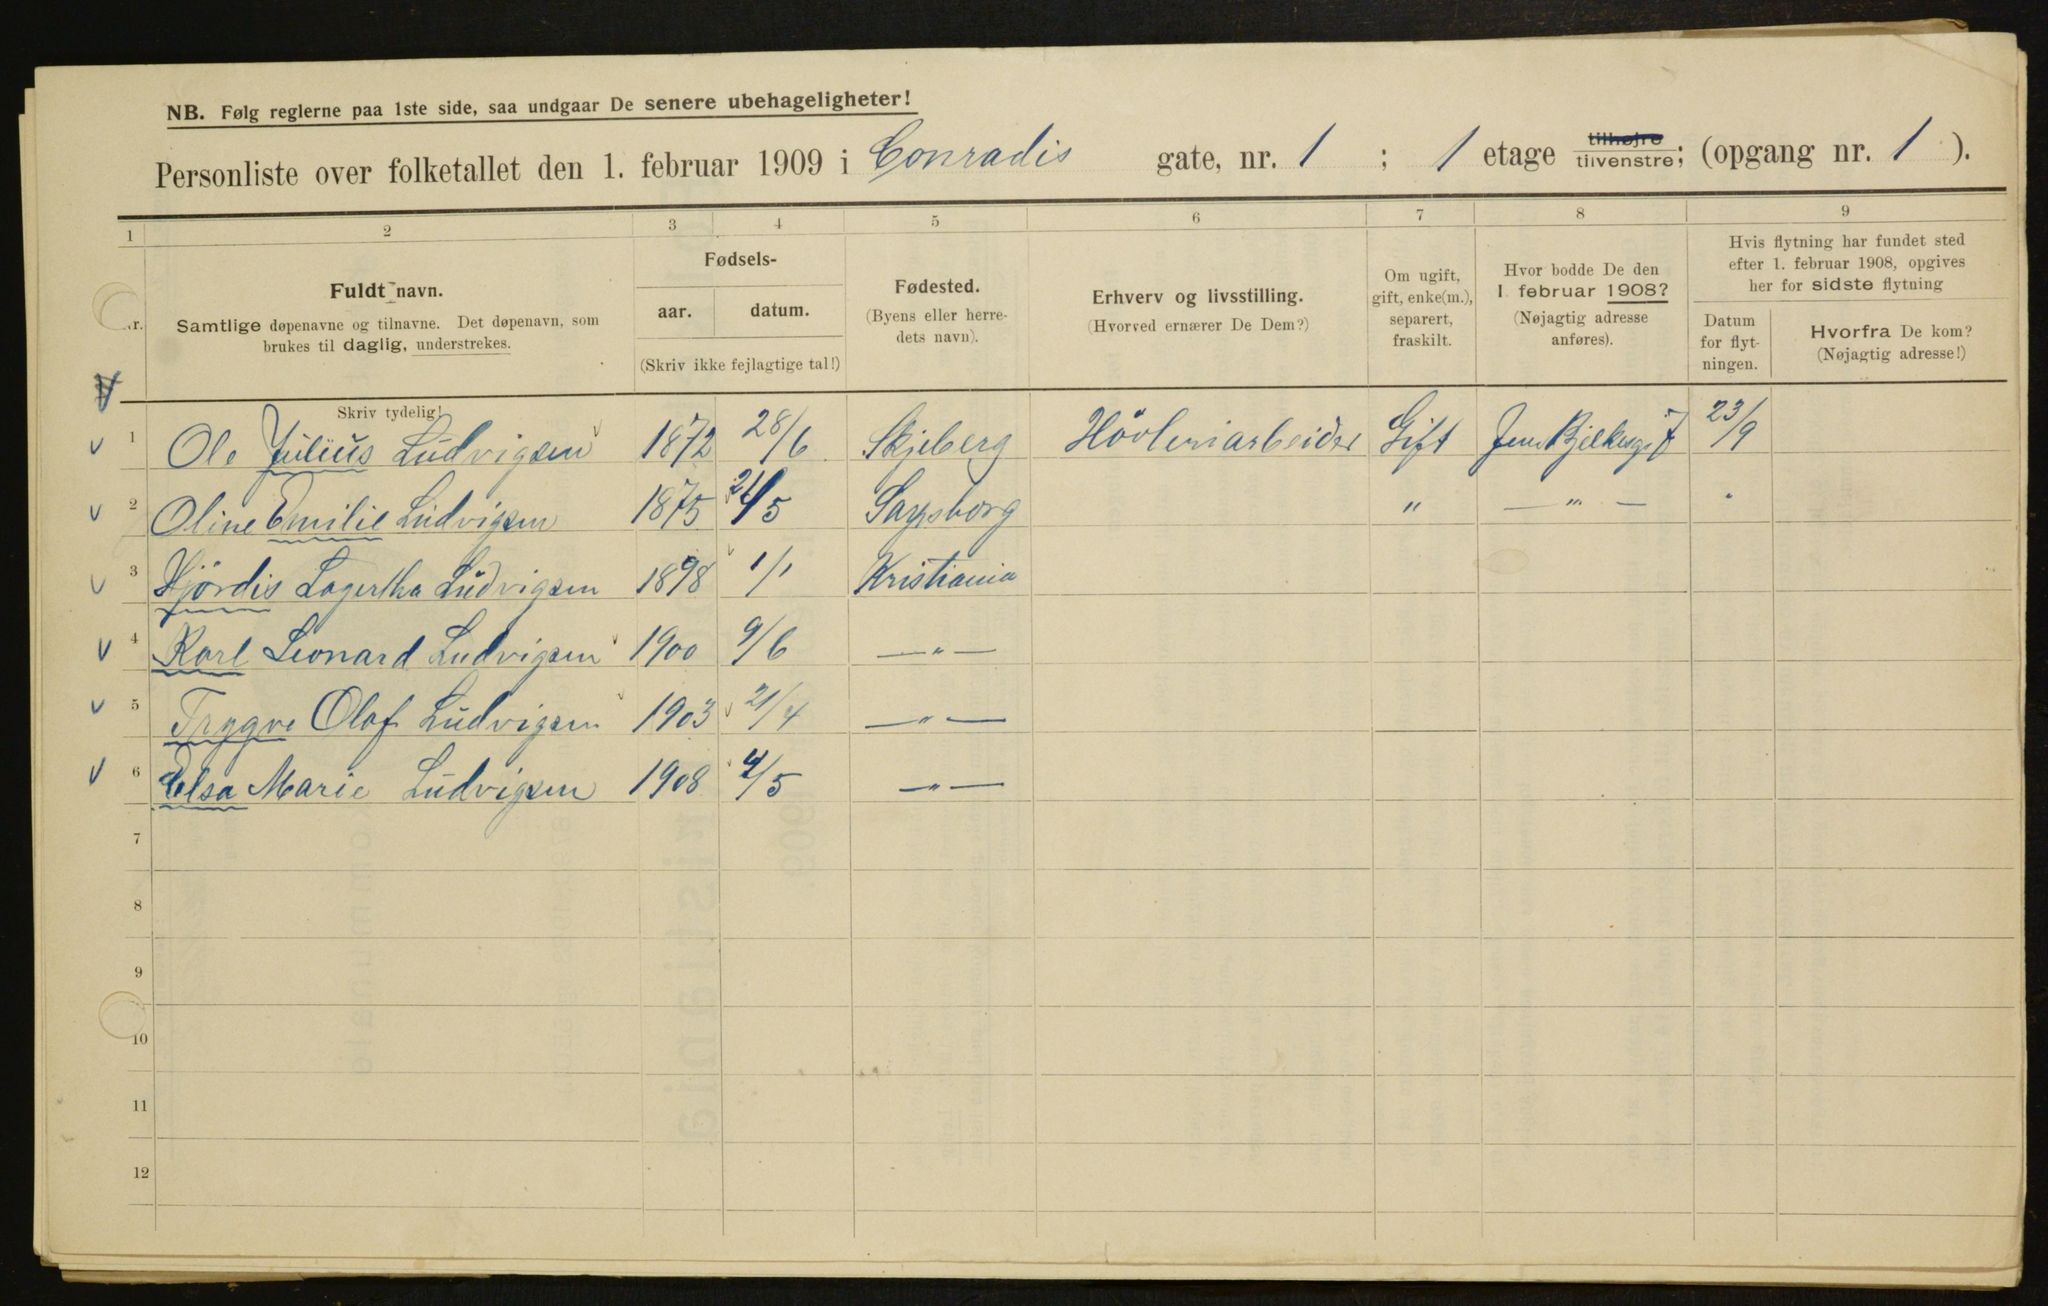 NB. Følg reglerne paa 1ste side, saa undgaar De senere ubehageligheter!
Personliste over folketallet den 1. februar 1909 i Conradis gate, nr. 1 ; 1 etage tilhøjre tilvenstre; (opgang nr. 1 ).
1 2 3 4 5 6 7 8 9
Nr.
Fuldt navn.
Samtlige døpenavne og tilnavne. Det døpenavn, som
brukes til daglig, understrekes.
Fødsels-
aar. datum.
(Skriv ikke fejlagtige tal!)
Fødested.
(Byens eller herre-
dets navn).
Erhverv og livsstilling.
(Hvorved ernærer De Dem?)
Om ugift,
gift, enke(m.),
separert,
fraskilt.
Hvor bodde De den
1. februar 1908?
(Nøjagtig adresse
anføres).
Hvis flytning har fundet sted
efter 1. februar 1908, opgives
her for sidste flytning
Datum
for flyt-
ningen.
Hvorfra De kom?
(Nøjagtig adresse!)
Skriv tydelig!
1 Ole Julius Ludvigsen 1872 28/6 Skjeberg Hövleriarbeider Gift Jens Bjelkesgt 7 23/9
2 Oline Emilie Ludvigsen 1875 /5 Sarpsborg " — " — "
3 Hjördis Lagertha Ludvigsen 1898 1/1 Kristiania
4 Karl Leonard Ludvigsen 1900 9/6 — " —
5 Trygve Olaf Ludvigsen 1903 21/4 — " —
6 Elsa Marie Ludvigsen 1908 4/5 — " —
7
8
9
10
11
12